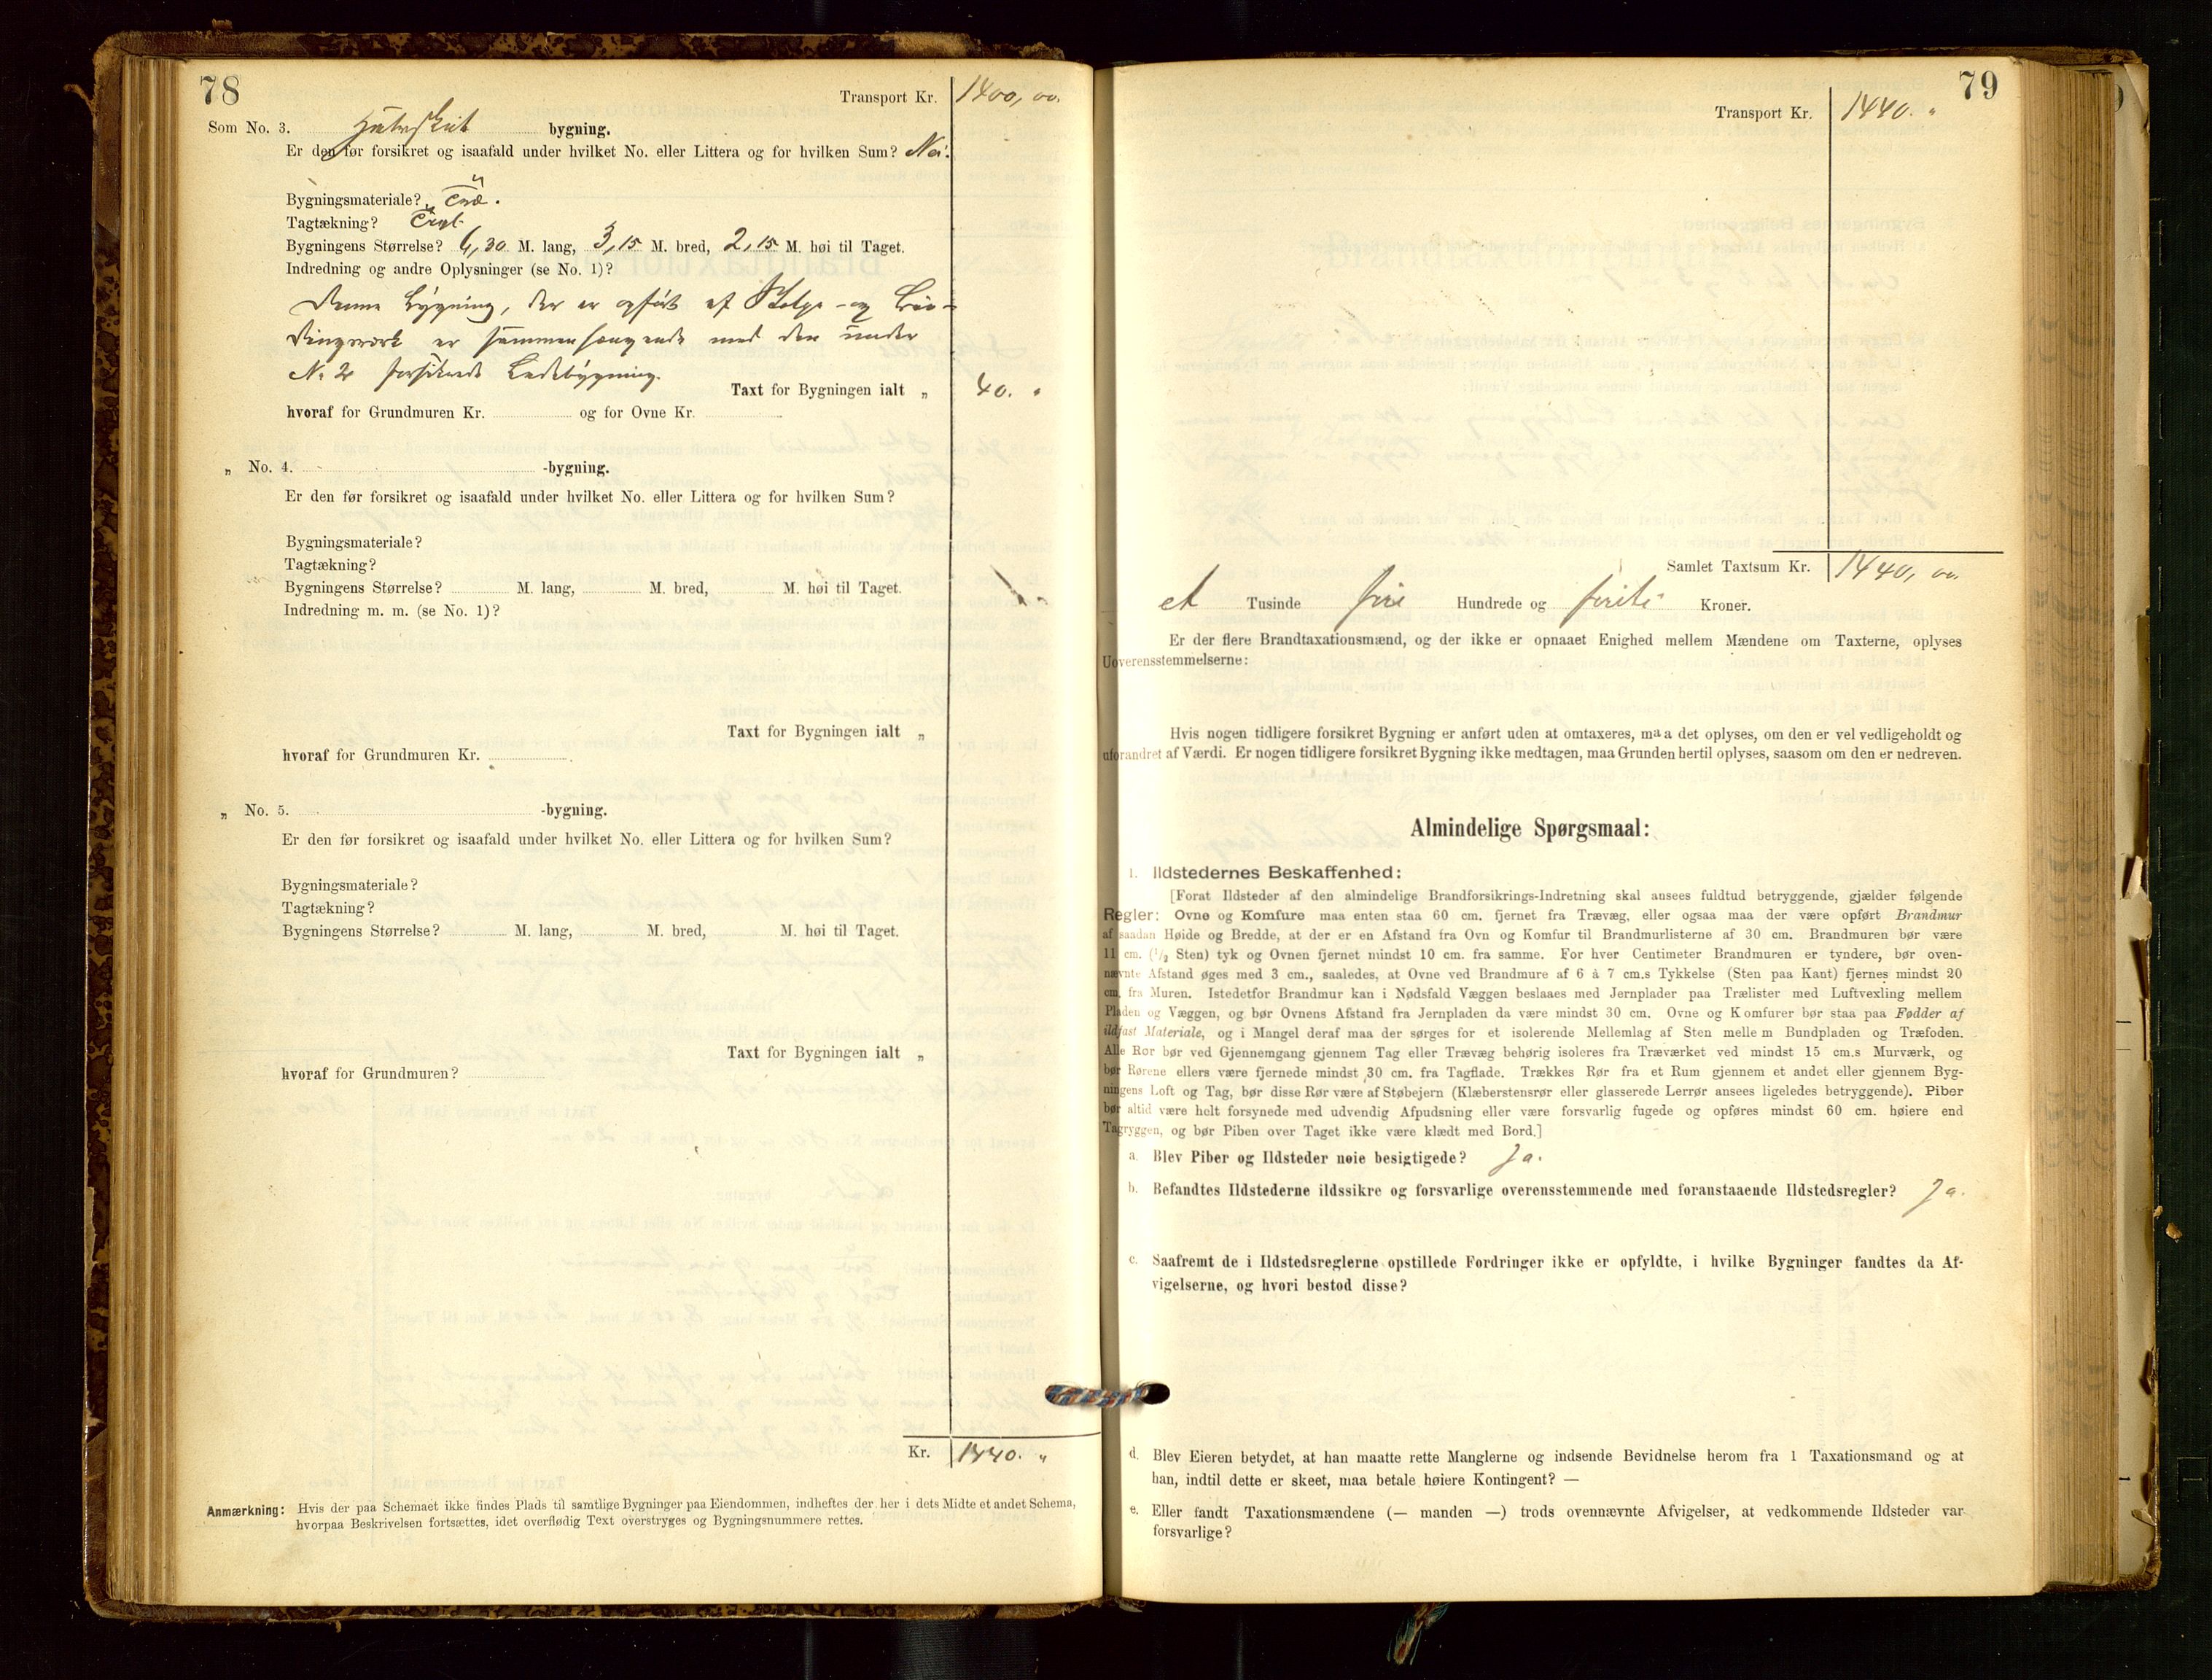 78
Transport Kr. 1400,00.
Som No. 3. bygning.
Er den før forsikret og isaafald under hvilket No. eller Littera og for hvilken Sum? Nei.
Bygningsmateriale? Træ.
Tagtækning?
Bygningens Størrelse? 6,30 M. lang, 3,15 M. bred, 2,15 M. høi til Taget.
Indredning og andre Oplysninger (se No. 1)?
Denne Bygning, der er opført af Stolpe- og Bin-
dingsværk er sammenhængende med den under
No 2 forsikrede Ladebygning.
Taxt for Bygningen ialt „ 40. "
hvoraf for Grundmuren Kr. og for Ovne Kr.
„ No. 4. -bygning.
Er den før forsikret og isaafald under hvilket No. eller Littera og for hvilken Sum?
Bygningsmateriale?
Tagtækning?
Bygningens Størrelse? M. lang, M. bred, M. høi til Taget.
Indredning m. m. (se No. 1)?
Taxt for Bygningen ialt „
hvoraf for Grundmuren Kr.
„ No. 5. -bygning.
Er den før forsikret og isaafald under hvilket No. eller Littera og for hvilken Sum?
Bygningsmateriale?
Tagtækning?
Bygningens Størrelse? M. lang, M. bred, M. høi til Taget.
Taxt for Bygningen ialt „
hvoraf for Grundmuren?
Kr. 1440. "
Anmærkning: Hvis der paa Schemaet ikke findes Plads til samtlige Bygninger paa Eiendommen, indheftes der her i dets Midte et andet Schema,
hvorpaa Beskrivelsen fortsættes, idet overflødig Text overstryges og Bygningsnummere rettes.
79
Transport Kr. 1440. "
Samlet Taxtsum Kr. 1440,00.
et Tusinde fire Hundrede og firiti Kroner.
Er der flere Brandtaxationsmænd, og der ikke er opnaaet Enighed mellem Mændene om Taxterne, oplyses
Uoverensstemmelserne:
Hvis nogen tidligere forsikret Bygning er anført uden at omtaxeres, maa det oplyses, om den er vel vedligeholdt og
uforandret af Værdi. Er nogen tidligere forsikret Bygning ikke medtagen, maa Grunden hertil oplyses, saasom om den er nedreven.
Almindelige Spørgsmaal:
1. Ildstedernes Beskaffenhed:
[Forat Ildsteder af den almindelige Brandforsikrings-Indretning skal ansees fuldtud betryggende, gjælder følgende
Regler: Ovne og Komfure maa enten staa 60 cm. fjernet fra Trævæg, eller ogsaa maa der være opført Brandmur
af saadan Høide og Bredde, at der er en Afstand fra Ovn og Komfur til Brandmurlisterne af 30 cm. Brandmuren bør være
11 cm. (1/2 Sten) tyk og Ovnen fjernet mindst 10 cm. fra samme. For hver Centimeter Brandmuren er tyndere, bør oven-
nævnte Afstand øges med 3 cm., saaledes, at Ovne ved Brandmure af 6 à 7 cm.s Tykkelse (Sten paa Kant) fjernes mindst 20
cm. fra Muren. Istedetfor Brandmur kan i Nødsfald Væggen beslaaes med Jernplader paa Trælister med Luftvexling mellem
Pladen og Væggen, og bør Ovnens Afstand fra Jernpladen da være mindst 30 cm. Ovne og Komfurer bør staa paa Fødder af
ildfast Materiale, og i Mangel deraf maa der sørges for et isolerende Mellemlag af Sten mellem Bundpladen og Træfoden.
Alle Rør bør ved Gjennemgang gjennem Tag eller Trævæg behørig isoleres fra Træværket ved mindst 15 cm.s Murværk, og
bør Rørene ellers være fjernede mindst 30 cm. fra Tagflade. Trækkes Rør fra et Rum gjennem et andet eller gjennem Byg-
ningens Loft og Tag, bør disse Rør være af Støbejern (Klæberstensrør eller glasserede Lerrør ansees ligeledes betryggende). Piber
bør altid være helt forsynede med udvendig Afpudsning eller være forsvarlig fugede og opføres mindst 60 cm. høiere end
Tagryggen, og bør Piben over Taget ikke være klædt med Bord.]
a. Blev Piber og Ildsteder nøie besigtigede? Ja.
b. Befandtes Ildstederne ildssikre og forsvarlige overensstemmende med foranstaaende Ildstedsregler? Ja.
c. Saafremt de i Ildstedsreglerne opstillede Fordringer ikke er opfyldte, i hvilke Bygninger fandtes da Af-
vigelserne, og hvori bestod disse?
d. Blev Eieren betydet, at han maatte rette Manglerne og indsende Bevidnelse herom fra 1 Taxationsmand og at
han, indtil dette er skeet, maa betale høiere Kontingent? —
e. Eller fandt Taxationsmændene (— manden —) trods ovennævnte Afvigelser, at vedkommende Ildsteder var
forsvarlige?